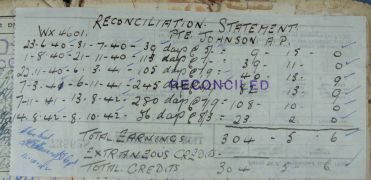 RECONCILIATION STATEMENT.
WX4601. PTE. JOHNSON. A.P.
23-6-40-31-7-40-39 days @ 5/- 9 - 15 - 0
1-8-40-21-11-40-113 days @ 7/- 39 - 11 - 0
22-11-40-6-3-41-105 days @
7-3-41-6-11-41-245 days @
RECONCILED
7-11-41-13-8-42-280 days @ 7/9 - 108 - 10 - 0
14-8-42-8-10-42-56 days @ 8/3 - 23 2 0
TOTAL EARNINGS 304 - 5 - 6
EXTRANEOUS CREDITS -
TOTAL CREDITS 304 5 6